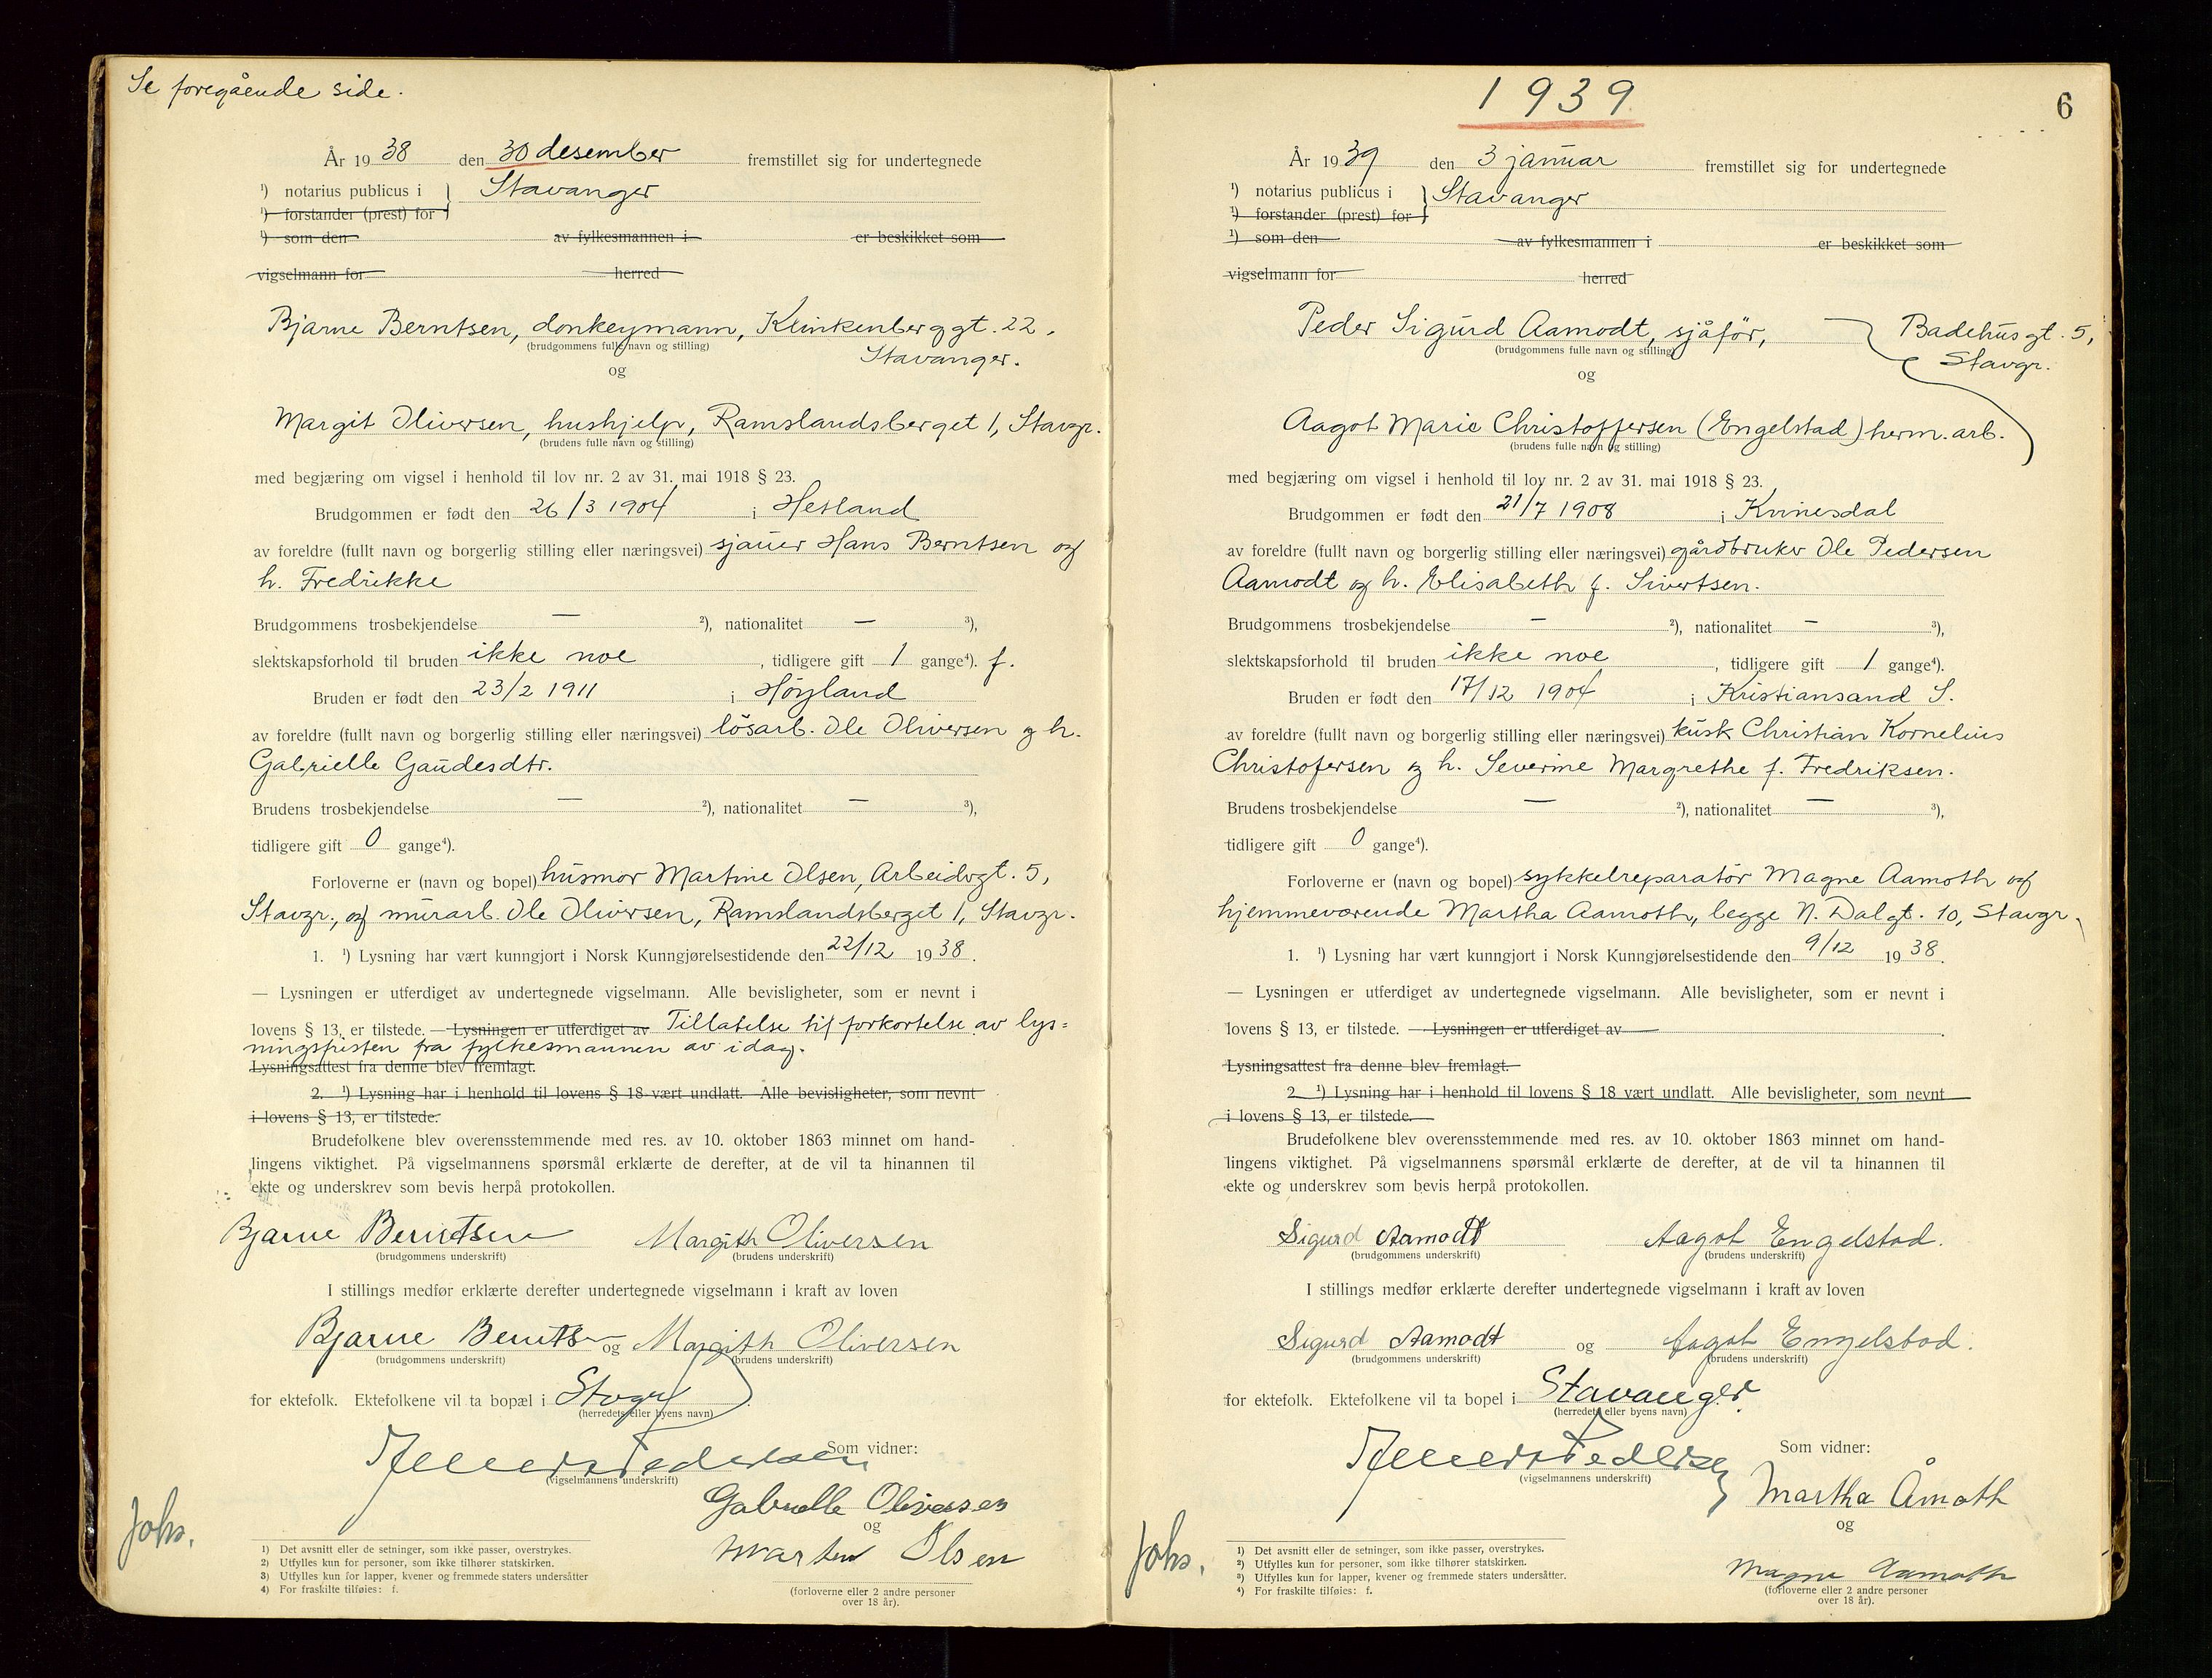 Se foregående side.
År 1938 den 30 desember fremstillet sig for undertegnede
¹) notarius publicus i } Stavanger
¹) forstander (prest) for
¹) som den av fylkesmannen i er beskikket som
vigselmann for herred
Bjarne Berntsen, donkeymann, Klinkenberggt. 22,
(brudgommens fulle navn og stilling)
Stavanger.
og
Margit Oliversen, hushjelp, Ramslandsberget 1, Stavgr.
(brudens fulle navn og stilling)
med begjæring om vigsel i henhold til lov nr. 2 av 31. mai 1918 § 23.
Brudgommen er født den 26/3 1904 i Hetland
av foreldre (fullt navn og borgerlig stilling eller næringsvei) sjauer Hans Berntsen og
h. Fredrikke
Brudgommens trosbekjendelse — ²), nationalitet — ³),
slektskapsforhold til bruden ikke noe, tidligere gift 1 gange⁴). f.
Bruden er født den 23/2 1911 i Høyland
av foreldre (fullt navn og borgerlig stilling eller næringsvei) lösarb. Ole Oliversen og h.
Gabrielle Gaudesdtr.
Brudens trosbekjendelse — ²), nationalitet — ³),
tidligere gift 0 gange⁴).
Forloverne er (navn og bopel) husmor Martine Olsen, Arbeidergt. 5,
Stavgr., og murarb. Ole Oliversen, Ramslandsberget 1, Stavgr.
1. ¹) Lysning har vært kunngjort i Norsk Kunngjørelsestidende den 22/12 1938.
— Lysningen er utferdiget av undertegnede vigselmann. Alle bevisligheter, som er nevnt i
lovens § 13, er tilstede. — Lysningen er utferdiget av Tillatelse til forkortelse av lys=
ningsfristen fra fylkesmannen av idag.
Lysningsattest fra denne blev fremlagt.
2. ¹) Lysning har i henhold til lovens § 18 vært undlatt. Alle bevisligheter, som nevnt
i lovens § 13, er tilstede.
Brudefolkene blev overensstemmende med res. av 10. oktober 1863 minnet om hand-
lingens viktighet. På vigselmannens spørsmål erklærte de derefter, at de vil ta hinannen til
ekte og underskrev som bevis herpå protokollen.
Bjarne Berntsen Margith Oliversen
(brudgommens underskrift) (brudens underskrift)
I stillings medfør erklærte derefter undertegnede vigselmann i kraft av loven
Bjarne Berntsen og Margith Oliversen
(brudgommens underskrift) (brudens underskrift)
for ektefolk. Ektefolkene vil ta bopæl i Stvgr
(herredets eller byens navn)
Som vidner:
(vigselmannens underskrift)
Gabrielle Oliversen
og
Martine Olsen
Johs.
1) Det avsnitt eller de setninger, som ikke passer, overstrykes.
2) Utfylles kun for personer, som ikke tilhører statskirken.
3) Utfylles kun for lapper, kvener og fremmede staters undersåtter
4) For fraskilte tilføies: f.
(forloverne eller 2 andre personer
over 18 år).
1939
6
År 1939 den 3 januar fremstillet sig for undertegnede
¹) notarius publicus i } Stavanger
¹) forstander (prest) for
¹) som den av fylkesmannen i er beskikket som
vigselmann for herred
Peder Sigurd Aamodt, sjåför, Badehusgt. 5,
(brudgommens fulle navn og stilling)
Stavgr.
og
Aagot Marie Christoffersen (Engelstad) herm.arb.
(brudens fulle navn og stilling)
med begjæring om vigsel i henhold til lov nr. 2 av 31. mai 1918 § 23.
Brudgommen er født den 21/7 1908 i Kvinesdal
av foreldre (fullt navn og borgerlig stilling eller næringsvei) gårdbruker Ole Pedersen
Aamodt og h. Elisabeth f. Sivertsen.
Brudgommens trosbekjendelse — ²), nationalitet — ³),
slektskapsforhold til bruden ikke noe, tidligere gift 1 gange⁴).
Bruden er født den 17/12 1904 i Kristiansand S.
av foreldre (fullt navn og borgerlig stilling eller næringsvei) kusk Christian Kornelius
Christofersen og h. Severine Margrethe f. Fredriksen.
Brudens trosbekjendelse — ²), nationalitet — ³),
tidligere gift 0 gange⁴).
Forloverne er (navn og bopel) sykkelreparatör Magne Aamoth og
hjemmeværende Martha Aamoth, begge N. Dalgt. 10, Stavgr.
1. ¹) Lysning har vært kunngjort i Norsk Kunngjørelsestidende den 9/12 1938.
— Lysningen er utferdiget av undertegnede vigselmann. Alle bevisligheter, som er nevnt i
lovens § 13, er tilstede. — Lysningen er utferdiget av
Lysningsattest fra denne blev fremlagt.
2. ¹) Lysning har i henhold til lovens § 18 vært undlatt. Alle bevisligheter, som nevnt
i lovens § 13, er tilstede.
Brudefolkene blev overensstemmende med res. av 10. oktober 1863 minnet om hand-
lingens viktighet. På vigselmannens spørsmål erklærte de derefter, at de vil ta hinannen til
ekte og underskrev som bevis herpå protokollen.
Sigurd Aamodt Aagot Engelstad.
(brudgommens underskrift) (brudens underskrift)
I stillings medfør erklærte derefter undertegnede vigselmann i kraft av loven
Sigurd Aamodt og Aagot Engelstad.
(brudgommens underskrift) (brudens underskrift)
for ektefolk. Ektefolkene vil ta bopel i Stavanger.
(herredets eller byens navn)
Som vidner:
(vigselmannens underskrift)
Martha Åmoth
og
Magne Aamoth
Johs.
1) Det avsnitt eller de setninger, som ikke passer, overstrykes.
2) Utfylles kun for personer, som ikke tilhører statskirken.
3) Utfylles kun for lapper, kvener og fremmede staters undersåtter.
4) For fraskilte tilføies: f.
(forloverne eller 2 andre personer
over 18 år).